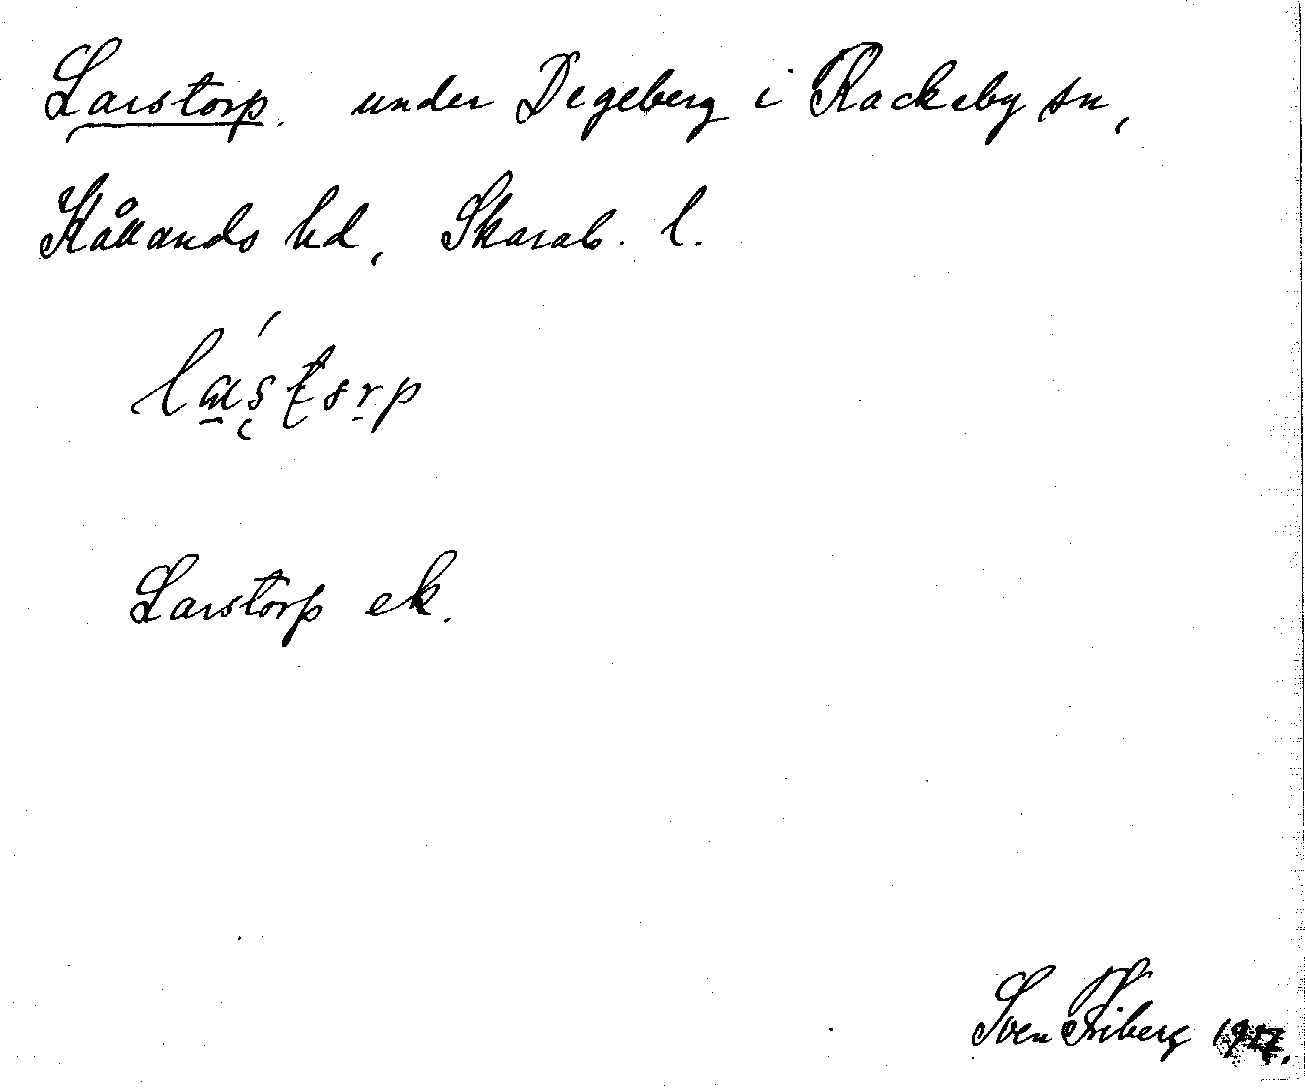 Larstorp. under Degeberg i Rackeby sn,
Kållands hd, Skarab. l.
Larstorp ek.
Sven Friberg